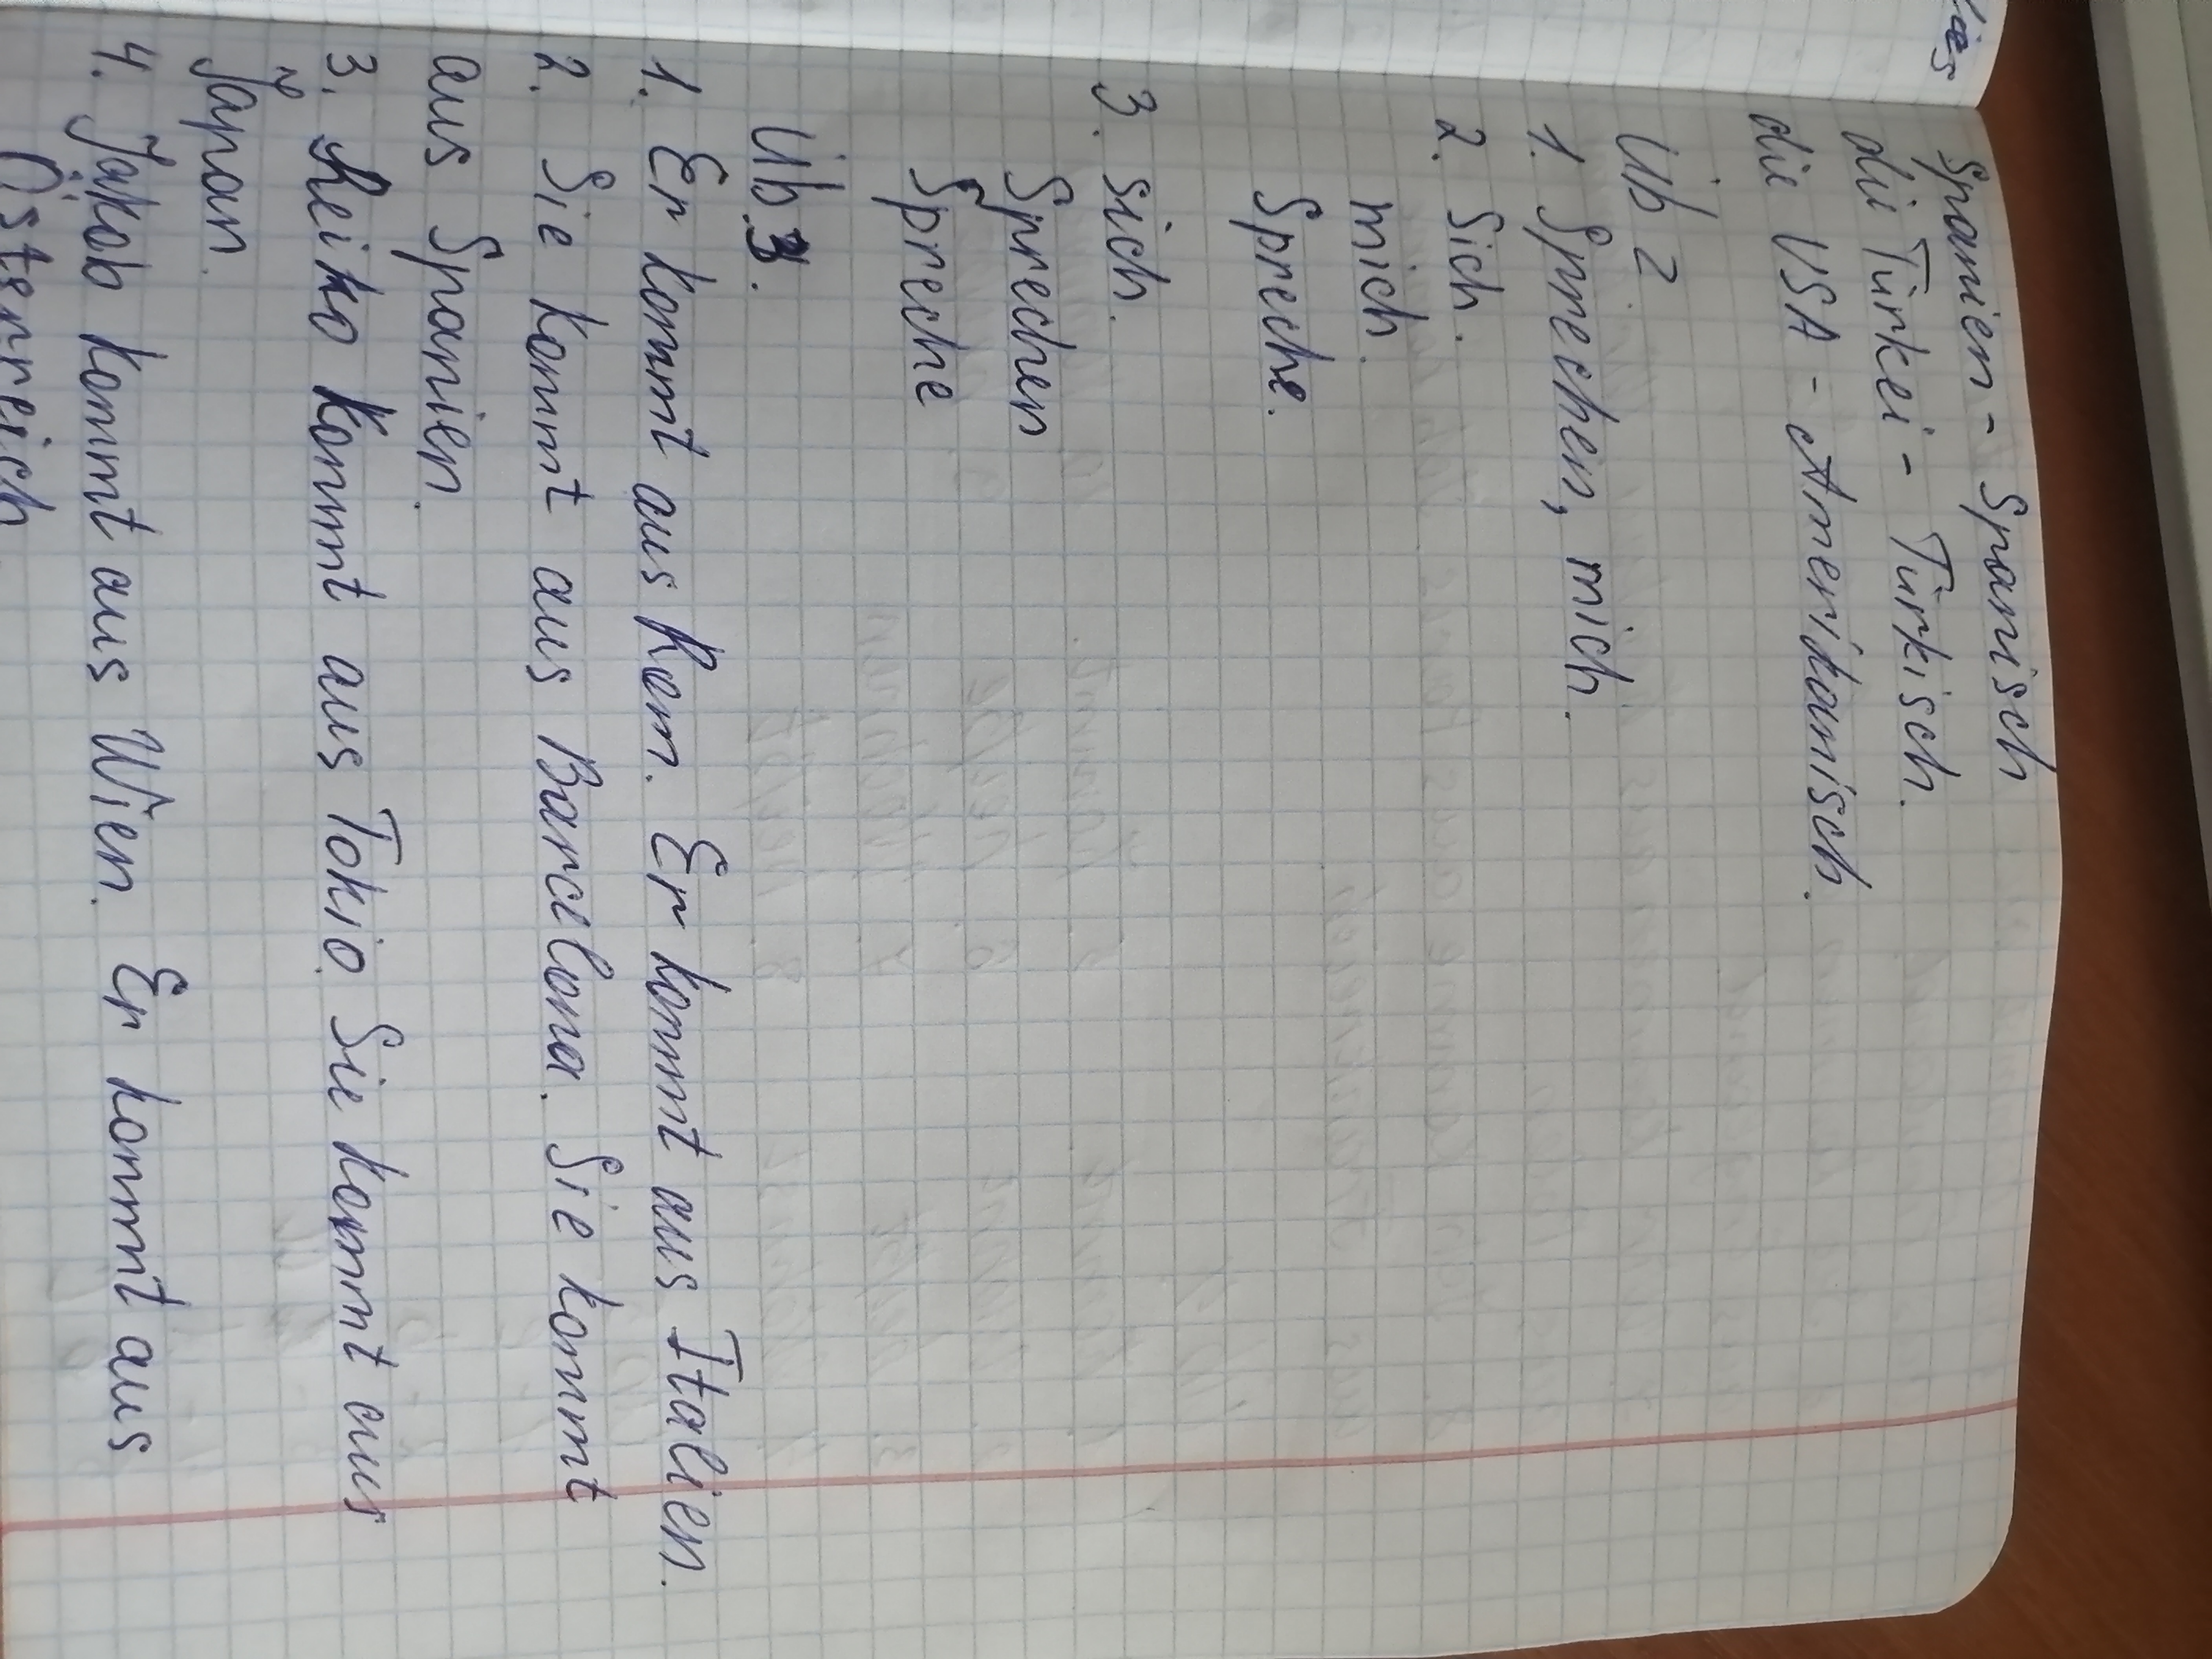 Spanien - Spanisch
die Türkei - Türkisch.
die USA - Amerikanisch.
Üb 2
1. Sprechen, mich.
2. Sich.
mich.
Spreche.
3. Sich.
Sprechen
Spreche
Üb 3.
1. Er kommt aus Rom. Er kommt aus Italien.
2. Sie kommt aus Barcelona. Sie kommt
aus Spanien.
3. Keiko kommt aus Tokio. Sie kommt aus
Japan.
4. Jakob kommt aus Wien. Er kommt aus
Österreich